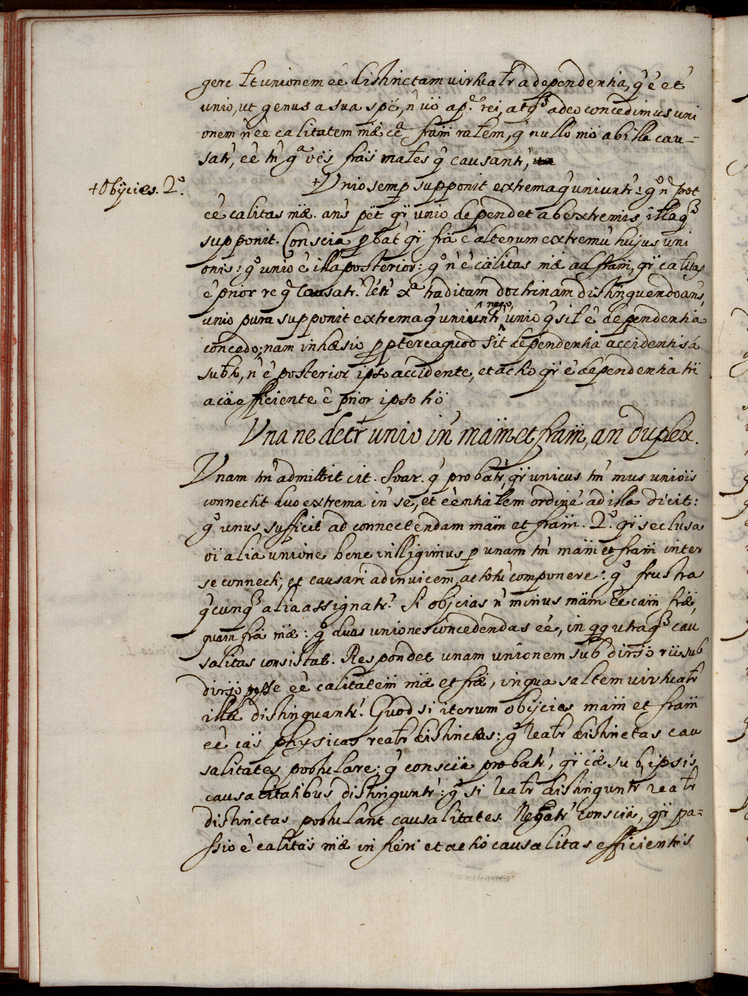 gere. Et unionem eē distinctam virtualr̄ a dependentia, q̄ ē et
unio, ut genus a sua spē, n̄ vō ap. rei, atq3 adeo concedimus uni
onem n̄ eē calitatem māe cā fram nalem, q̄ nullo mo ab illa cau-
satr, eē tn̄ qa oēs frās males q̄ causantr,
+ Obijcies. 2º. + Unio semp supponit extrema q̄ uniuntr: gº n̄ pōt
eē calitas māe. ans pēt qr̄ unio dependet ab extremis, illaq3
supponit. Conscia pbatr qr̄ fra ē alterum extremū huius uni
onis: gº unio ē illa posterior: gº n̄ ē calitas māe ad fram, qr̄ calitas
ē prior re q̄ causatr. traditam doctrinam distinguendo ans,
unio pura supponit extrema q̄ uniuntr ^nego, unio q̄ sit ē dependentia
concedo; nam inhæsio pptereaquod sit dependentia accidentis a
subto, n̄ ē posterior ipso accidente, et actio qr̄ ē dependentia
a cā efficiente ē prior ipso
Una ne detr unio int̄ mam et fram, an duplex.
Unam tn̄ admittit cit. Suar. q̄ probatr, qr̄ unicus tn̄ nus unionis
connectit duo extrema int̄ se, et eēntialem ordine ad illa dicit:
gº unus sufficit ad connectendam mam et fram. 2º. qr̄ seclusa
oī alia unione bene intligimus p unam tn̄ mam et fram inter
se connecti, et causari adinvicem, ac totū componere: gº frustra
q̄cunq3 alia assignatr. Si obijcias n̄ minus mam eē cām fræ,
quam fra māe: gº duas uniones concedendas eē, in qq utraq3 cau
salitas consistat. Respondet unam unionem sub diverso sub
diverso posse eē calitatem māe et fræ, in qua saltem virtualr̄
illæ distinguantr. Quod si iterum obijcies mam et fram
eē cās physicas realr̄ distinctas: gº realr̄ distinctas cau
salitates postulare: q̄ conscia probatr, qr̄ cāe suis ipsis
causalitatibus distinguntr: gº si realr̄ distinguntr realr̄
distinctas postulant causalitates. Negatr conscia, qr̄ pa-
ssio ē calitas māe in fieri et actio causalitas efficientis